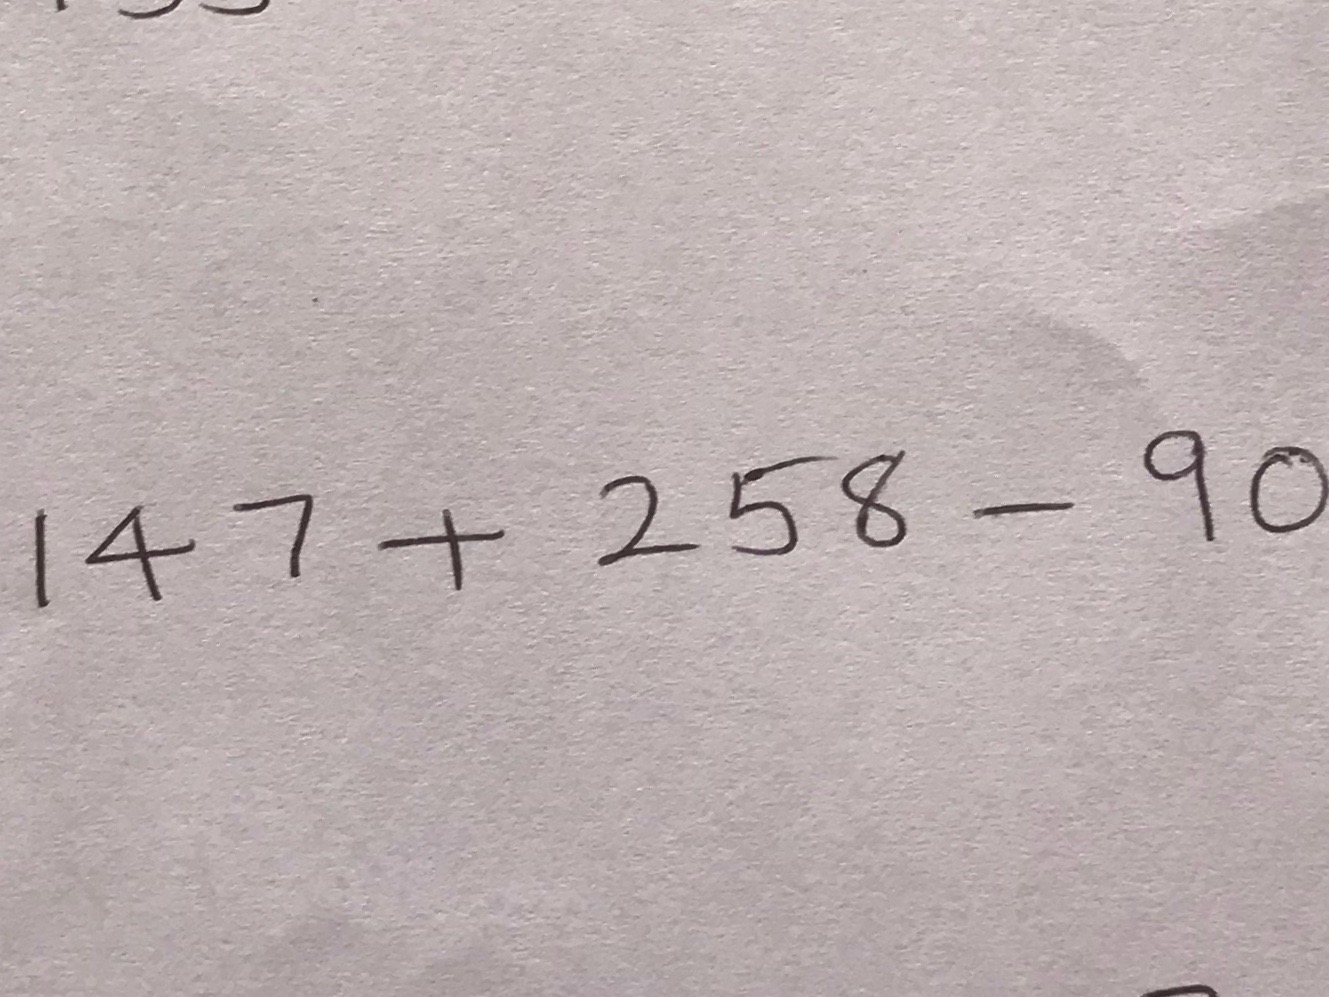 147 + 258 - 90